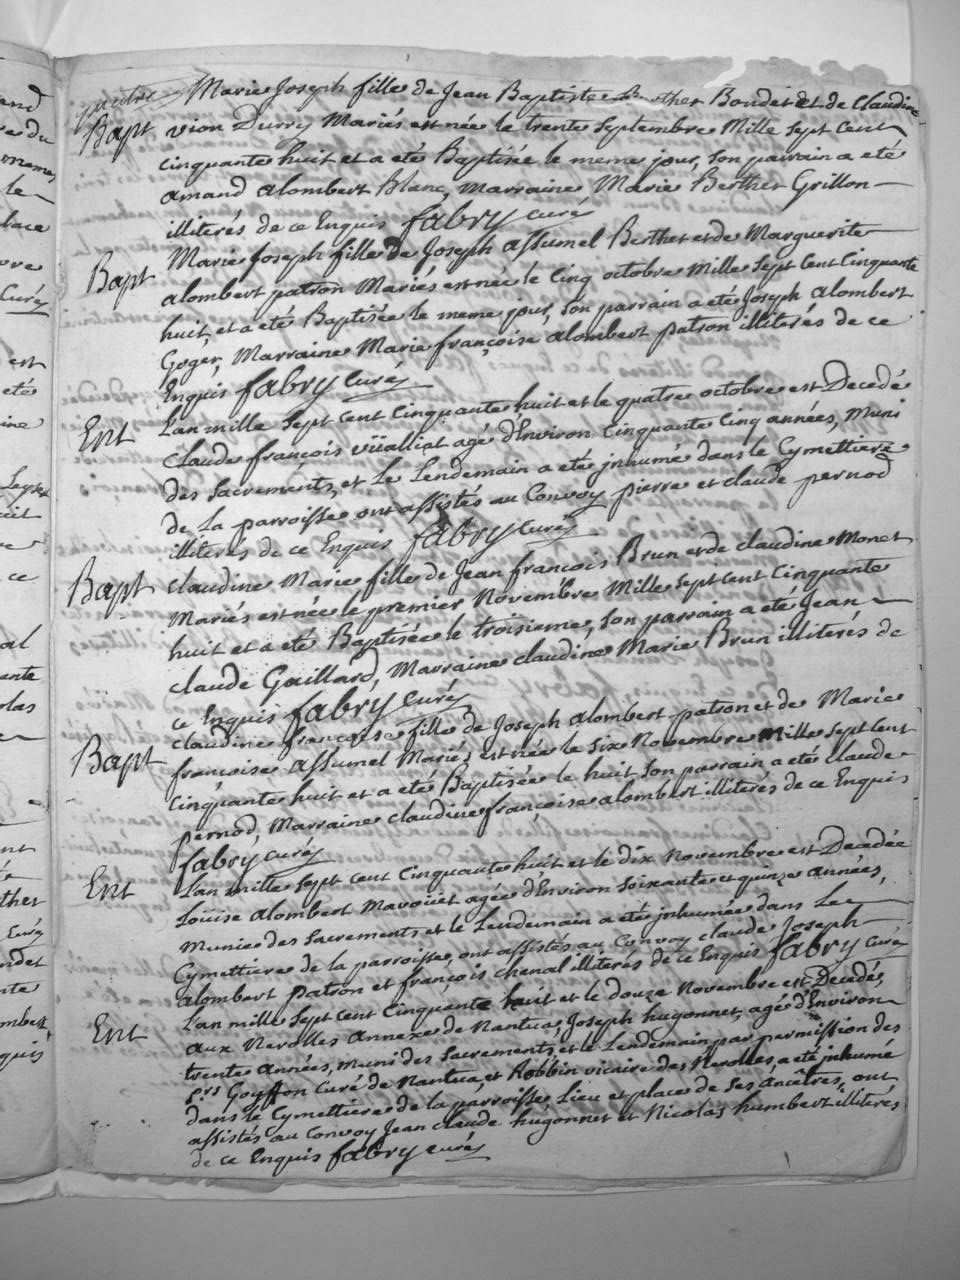 Marie Joseph fille de Jean Baptiste Berthet Bondet et de Claudine
Bapt vion Durry Mariés est née le trente Septembre Mille Sept Cent
cinquante huit et a eté Baptisée le meme jour, Son parrain a eté
amand alombert Blanc, Marraine Marie Berthet Grillon
illiterés de ce Enquis fabry curé
Bapt Marie Joseph fille de Joseph assumel Berthet et de Marguerite
alombert patron Mariés est née le Cinq octobre Mille Sept Cent Cinquante
huit, et a eté Baptisée le meme jour, Son parrain a eté Joseph alombert
Goger, Marraine Marie françoise alombert patron illiterés de ce
Enquis fabry Curé
Ent L'an mille Sept Cent Cinquante huit et le quatre octobre est Decedé
Claude françois vüalliat agé d'Environ Cinquante Cinq années, Muni
des Sacrements, et Le Lendemain a eté jnhumé dans le Cymettiere
de La parroisse ont assistés au Convoy pierre et claude pernod
illiterés de ce Enquis fabry Curé
Bapt Claudine Marie fille de Jean françois Brun et de claudine Monet
Mariés est née le premier Novembre Mille Sept Cent Cinquante
huit et a eté Baptisée le troisieme, Son parrain a eté Jean
claude Gaillard, Marraine claudine Marie Brun illiterés de
ce Enquis fabry Curé
Bapt claudine françoise fille de Joseph alombert patron et de Marie
francoise assumel Mariés est née le Six Novembre Mille Sept Cent
Cinquante huit et a eté Baptisée le huit Son parrain a eté claude
pernod, Marraine claudine françoise alombert illiterés de ce Enquis
fabry curé
Ent L'an mille Sept Cent Cinquante huit et le dix Novembre est Decedée
Loüise alombert Mavoüet agée d'Environ Soixante et quinze années,
Munie des Sacrements et le Lendemain a eté jnhumée dans Le
Cymettiere de la parroisse, ont assistés au Convoy claude Joseph
alombert patron et françois chenal illiterés de ce Enquis fabry Curé
Ent L'an mille Sept Cent Cinquante huit et le douze Novembre est Decedé,
aux Neyrolles annexe de Nantua, Joseph hugonnet, agé d'Environ
trente Années, muni des Sacrements et le Lendemain par permission des
Srs Goyffon Curé de Nantua, et Robbin vicaire des Nerolles, a eté jnhumé
dans le Cymettiere de la parroisse Lieu et place de Ses Ancêtres, ont
assistés au Convoy Jean claude hugonnet et Nicolas humbert illiterés
de ce Enquis fabry curé